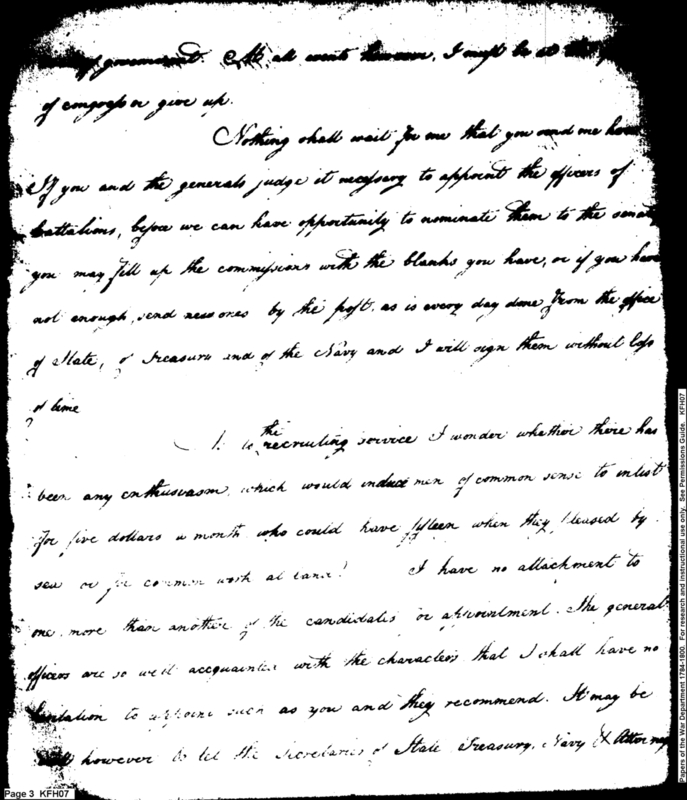 of government. At all events however, I must be at the
of congress or give up.
Nothing shall wait for me that you send me here
If you and the generals judge it necessary to appoint the officers of
battalions, before we can have opportunity to nominate them to the senate
you may fill up the commissions with the blanks you have, or if you have
not enough, send new ones by the post, as is every day done from the office
of State, of Treasury and of the Navy and I will sign them without loss
of time
?
to the recruiting service I wonder whether there has
been any enthusiasm, which would induce men of common sense to inlist
for five dollars a month who could have fifteen when they pleased by
sea or for common work at land? I have no attachment to
one more than another of the candidates for appointment. The general
officers are so well acquainted with the characters that I shall have no
hesitation to appoint such as you and they recommend. It may be
well however to let the Secretaries of State Treasury, Navy & Attorney
Page 3 KFH07
Papers of the War Department 1784-1800. For research and instructional use only. See Permissions Guide. KFH07